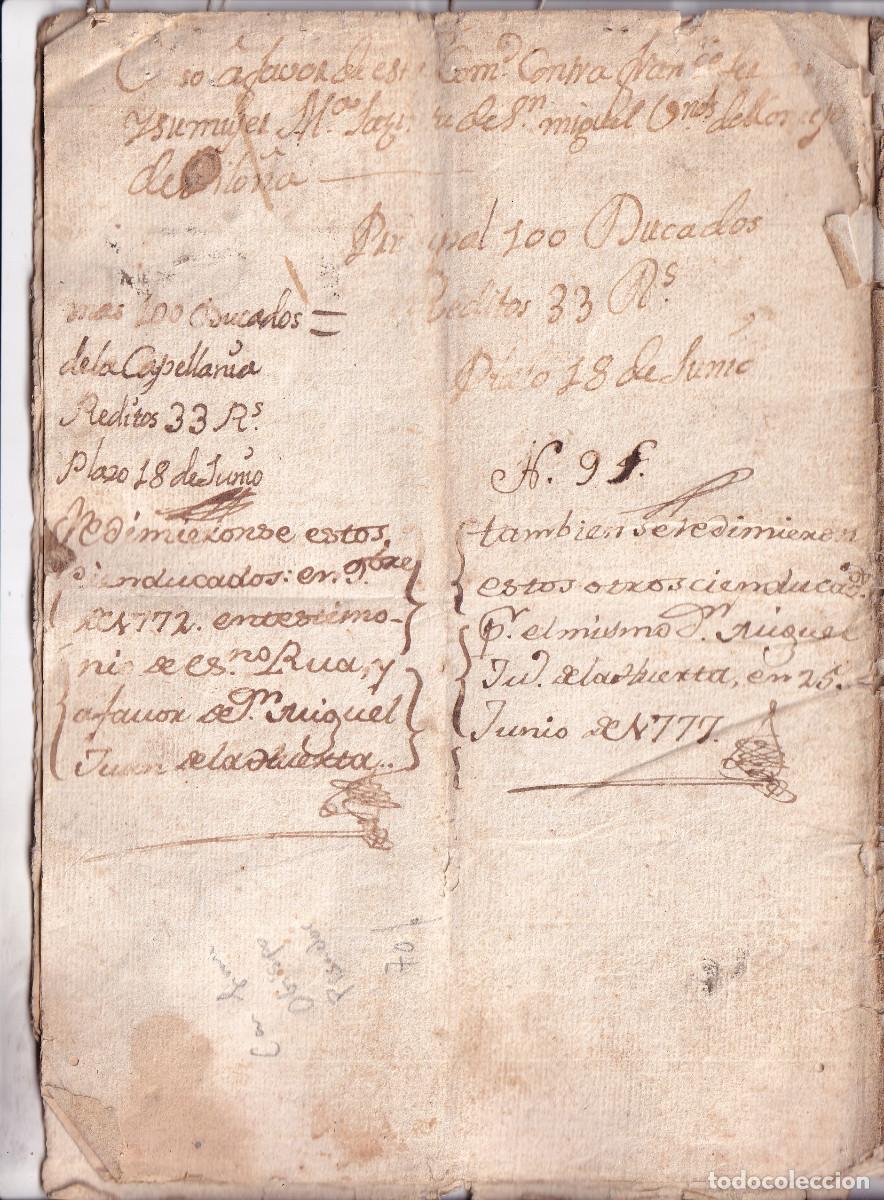 so a favor de est Com.d Contra fran.co
Y su muger M.a de S.n miguel del Conzejo
de Piloña
Prinzipal 100 Ducados
Reditos 33 R.s
Plazo 18 de Junio
mas 100 Ducados =
de la Capellania
Reditos 33 R.s
Plazo 18 de Junio
N. 9
Redimieronse estos
cien ducados: en 9.bre
de 1772. en testimo-
nio de es.no Rua, y
a favor de D.n Miguel
Juan de la Huerta..
tambien se redimieron
estos otros cien ducad.s
p.r el mismo D.n Miguel
Ju.n de la Huerta, en 25.
Junio de 1777.
70
todocoleccion